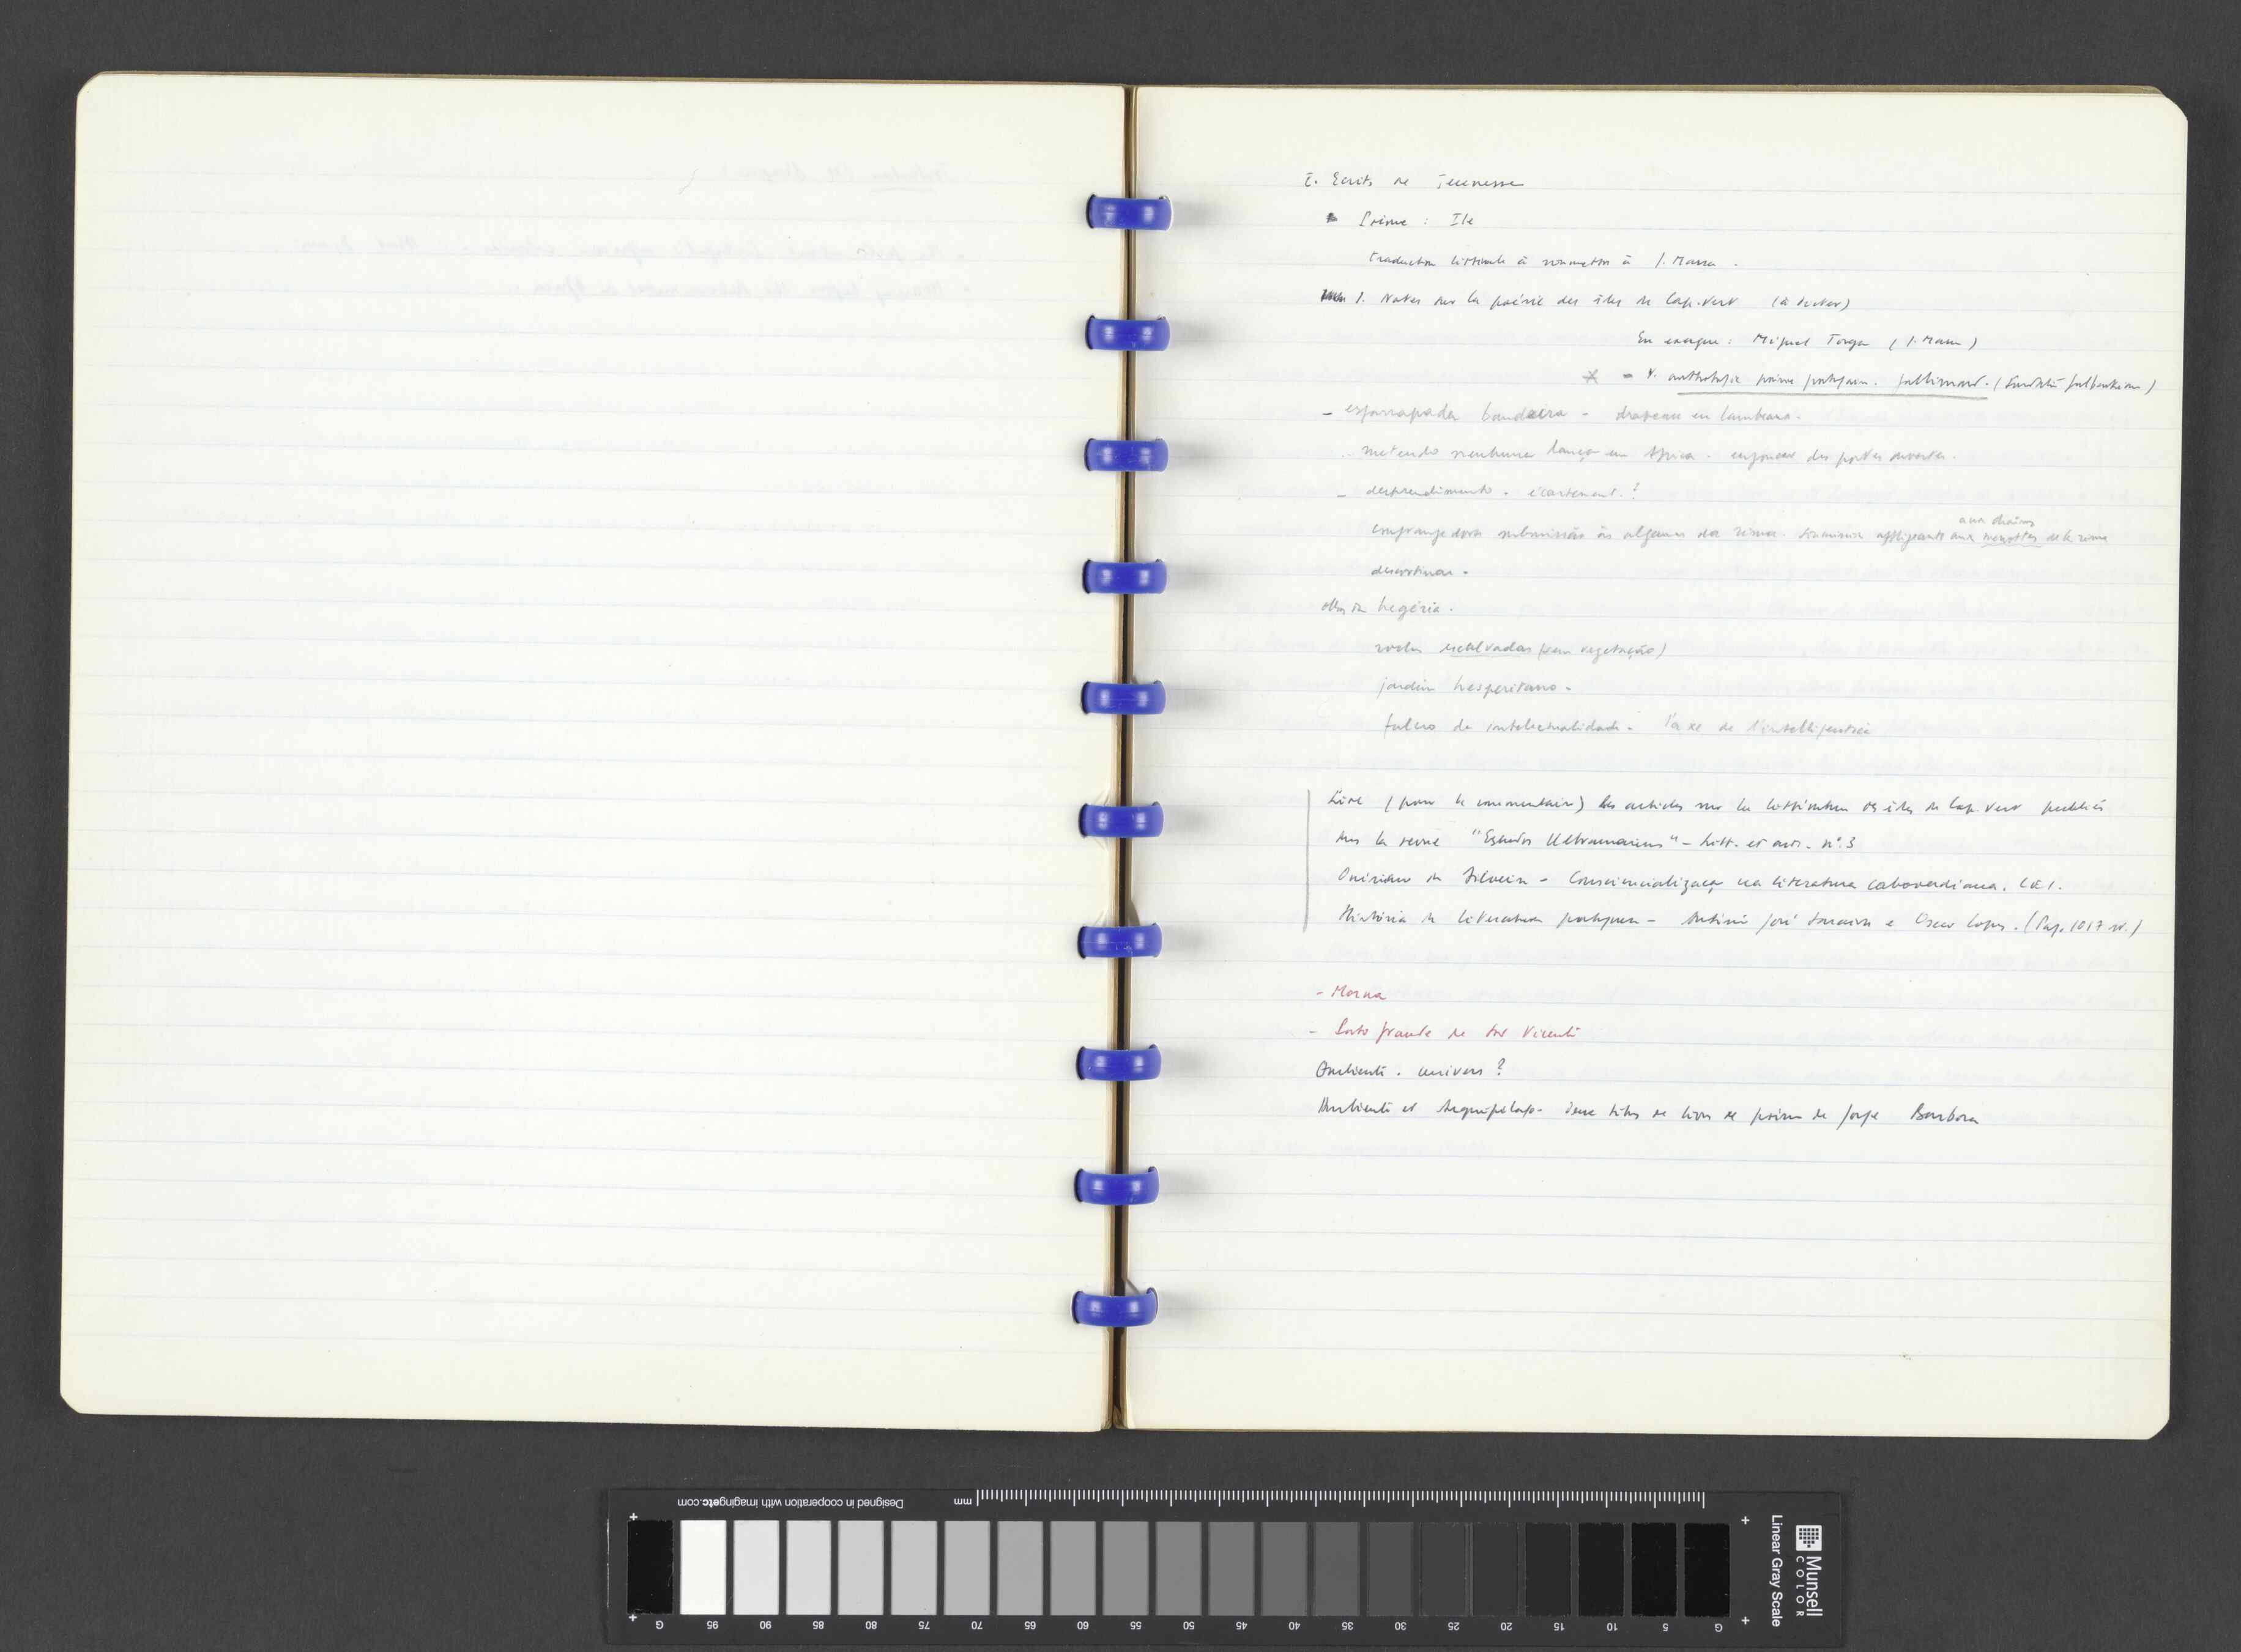 I. Ecrits de Jeunesse
Poème : Ile
traduction littérale à soumettre à J. Massa.
1. Notes sur la poésie des îles du Cap-Vert (à dicter)
En exergue : Miguel Torga (J. Massa)
* - V. anthologie poésie portugaise. Gallimard. (Fundação Gulbenkian)
- esfarrapada bandeira - drapeau en lambeaux.
metendo nenhuma lança em África. enfoncer des portes ouvertes.
- desprendimento. écartement. ?
submissão às algemas da rima. soumission affligeante aux menottes de la rime
aux chaînes
descortinar.
olhos da hegéria.
rochas escalvadas (sem vegetação)
jardim hesperitano.
fulcro da intelectualidade. l'axe de l'intelligentsia
Lire (pour le commentaire) les articles sur la littérature des îles du Cap Vert publiés
dans la revue "Estudos Ultramarinos" - Litt. et arts - nº 3
Onésimo da Silveira - Consciencialização na literatura caboverdiana. CEI.
História da literatura portuguesa - António José Saraiva e Oscar Lopes. (Pag. 1017 sv.)
- Morna
- Porto grande de São Vicente
Ambiente. univers ?
Ambiente et Arquipélago. deux titres de livres de poèmes de Jorge Barbosa
Designed in cooperation with imagingetc.com
mm
Munsell COLOR
Linear Gray Scale
G 95 90 85 80 75 70 65 60 55 50 45 40 35 30 25 20 15 10 5 G